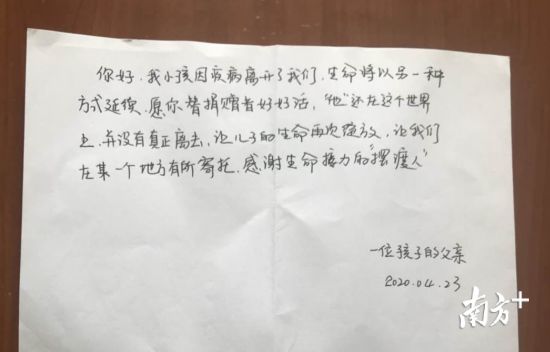 你好,我小孩因疾病离开了我们,生命将以另一种
方式延续.愿你替捐赠者好好活,"他"还在这个世界
上,并没有真正离去,让儿子的生命再次绽放,让我们
在某一个地方有所寄托.感谢生命接力的"摆渡人"
一位孩子的父亲
2020.04.23
南方+